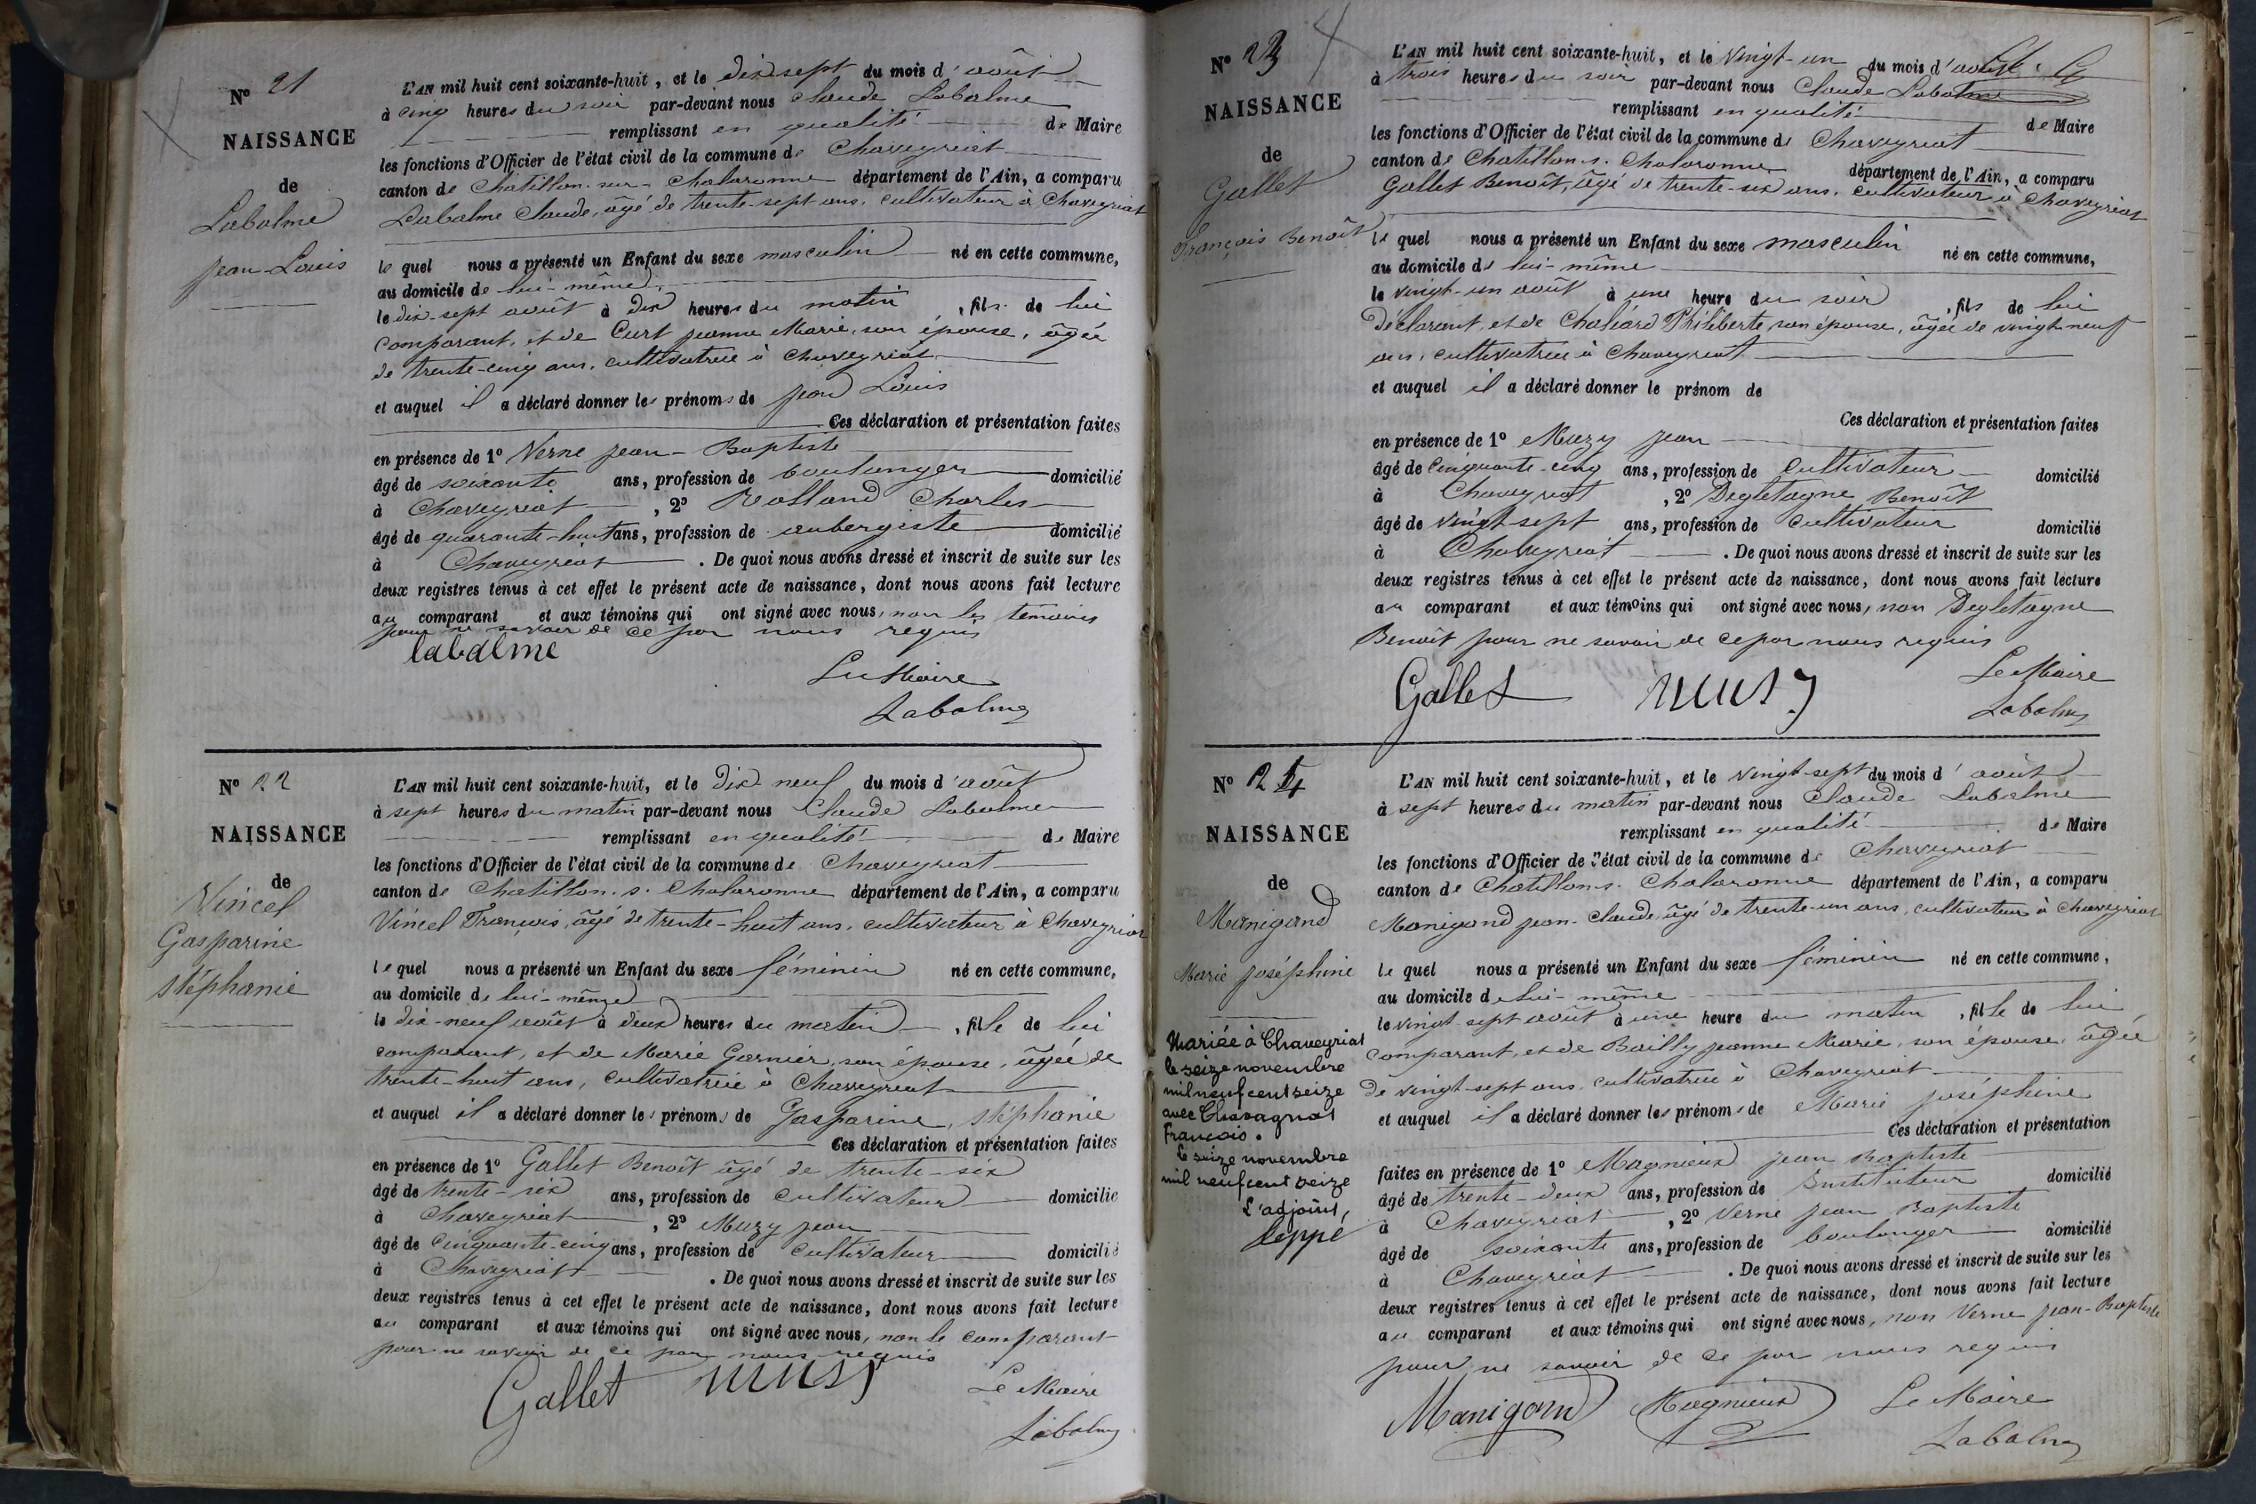 N° 21
NAISSANCE
de
Labalme
Jean-Louis
L'AN mil huit cent soixante-huit, et le dix sept du mois d'août
à cinq heures du soir par-devant nous Claude Labalme
remplissant en qualité de Maire
les fonctions d'Officier de l'état civil de la commune de Chaveyriat
canton de Châtillon-sur-Chalaronne département de l'Ain, a comparu
Labalme Claude, âgé de trente-sept ans, cultivateur à Chaveyriat
le quel nous a présenté un Enfant du sexe masculin né en cette commune,
au domicile de lui-même
le dix-sept août à dix heures du matin, fils de lui
comparant, et de Curt jeanne Marie, son épouse, âgée
de trente-cinq ans, cultivatrice à Chaveyriat
et auquel il a déclaré donner les prénoms de jean Louis
Ces déclaration et présentation faites
en présence de 1° Verne jean-Baptiste
âgé de soixante ans, profession de boulanger domicilié
à Chaveyriat, 2° Rolland Charles
âgé de quarante-huit ans, profession de aubergiste domicilié
à Chaveyriat. De quoi nous avons dressé et inscrit de suite sur les
deux registres tenus à cet effet le présent acte de naissance, dont nous avons fait lecture
au comparant et aux témoins qui ont signé avec nous, non les témoins
pour ne savoir de ce par nous requis
labalme
Le Maire
Labalme
N° 22
NAISSANCE
de
Vincel
Gasparine
Stéphanie
L'AN mil huit cent soixante-huit, et le dix neuf du mois d'août
à sept heures du matin par-devant nous Claude Labalme
remplissant en qualité de Maire
les fonctions d'Officier de l'état civil de la commune de Chaveyriat
canton de Chatillon-s-Chalaronne département de l'Ain, a comparu
Vincel François, âgé de trente-huit ans, cultivateur à Chaveyriat
le quel nous a présenté un Enfant du sexe féminin né en cette commune,
au domicile de lui-même
le dix-neuf août à deux heures du matin, fille de lui
comparant, et de Marie Garnier, son épouse, âgée de
trente-huit ans, cultivatrice à Chaveyriat
et auquel il a déclaré donner les prénoms de Gasparine, Stéphanie
Ces déclaration et présentation faites
en présence de 1° Gallet Benoît âgé de trente-six
âgé de trente-six ans, profession de cultivateur domicilié
à Chaveyriat, 2° Muzy jean
âgé de cinquante-cinq ans, profession de cultivateur domicilié
à Chaveyriat. De quoi nous avons dressé et inscrit de suite sur les
deux registres tenus à cet effet le présent acte de naissance, dont nous avons fait lecture
au comparant et aux témoins qui ont signé avec nous, non le comparant
pour ne savoir de ce par nous requis
Gallet
Le Maire
Labalme
N° 23
NAISSANCE
de
Gallet
François Benoît
L'AN mil huit cent soixante-huit, et le vingt-un du mois d'août
à trois heures du soir par-devant nous Claude Labalme
remplissant en qualité de Maire
les fonctions d'Officier de l'état civil de la commune de Chaveyriat
canton de Chatillon-s-Chalaronne département de l'Ain, a comparu
Gallet Benoît, âgé de trente-six ans, cultivateur à Chaveyriat
le quel nous a présenté un Enfant du sexe masculin né en cette commune,
au domicile de lui-même
le vingt-un août à une heure du soir, fils de lui
Déclarant, et de Chaléard Philiberte son épouse, âgée de vingt neuf
ans, cultivatrice à Chaveyriat
et auquel il a déclaré donner le prénom de
Ces déclaration et présentation faites
en présence de 1° Muzy jean
âgé de cinquante-cinq ans, profession de cultivateur domicilié
à Chaveyriat, 2° Degletagne Benoît
âgé de vingt-sept ans, profession de cultivateur domicilié
à Chaveyriat. De quoi nous avons dressé et inscrit de suite sur les
deux registres tenus à cet effet le présent acte de naissance, dont nous avons fait lecture
au comparant et aux témoins qui ont signé avec nous, non Degletagne
Benoît pour ne savoir de ce par nous requis
Gallet
Le Maire
Labalme
N° 24
NAISSANCE
de
Manigand
Marie Joséphine
Mariée à Chaveyriat
le seize novembre
mil neuf cent seize
avec Chavagnat
François.
Le seize novembre
mil neuf cent seize
L'adjoint,
L'AN mil huit cent soixante-huit, et le vingt-sept du mois d'août
à sept heures du matin par-devant nous Claude Labalme
remplissant en qualité de Maire
les fonctions d'Officier de l'état civil de la commune de Chaveyriat
canton de Chatillon-s-Chalaronne département de l'Ain, a comparu
Manigand jean-Claude, âgé de trente-un ans, cultivateur à Chaveyriat
le quel nous a présenté un Enfant du sexe féminin né en cette commune,
au domicile de lui-même
le vingt-sept août à une heure du matin, fille de lui
comparant, et de Bailly jeanne Marie, son épouse, âgée
de vingt-sept ans, cultivatrice à Chaveyriat
et auquel il a déclaré donner les prénoms de Marie joséphine
Ces déclaration et présentation
faites en présence de 1° Magnieux jean Baptiste
âgé de trente-deux ans, profession de Instituteur domicilié
à Chaveyriat, 2° Verne jean Baptiste
âgé de soixante ans, profession de boulanger domicilié
à Chaveyriat. De quoi nous avons dressé et inscrit de suite sur les
deux registres tenus à cet effet le présent acte de naissance, dont nous avons fait lecture
au comparant et aux témoins qui ont signé avec nous, non Verne jean-Baptiste
pour ne savoir de ce par nous requis
Manigand
Magnieux
Le Maire
Labalme